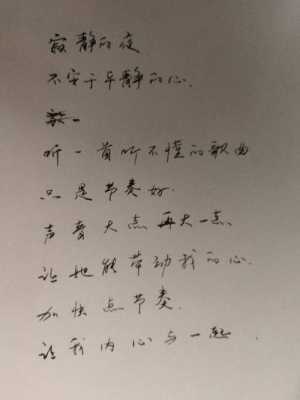 寂静的夜
不安于平静的心.
听一首听不懂的歌曲
只是节奏好.
声音大点 再大一点.
让她能带动我的心.
加快点节奏.
让我内心与一起.